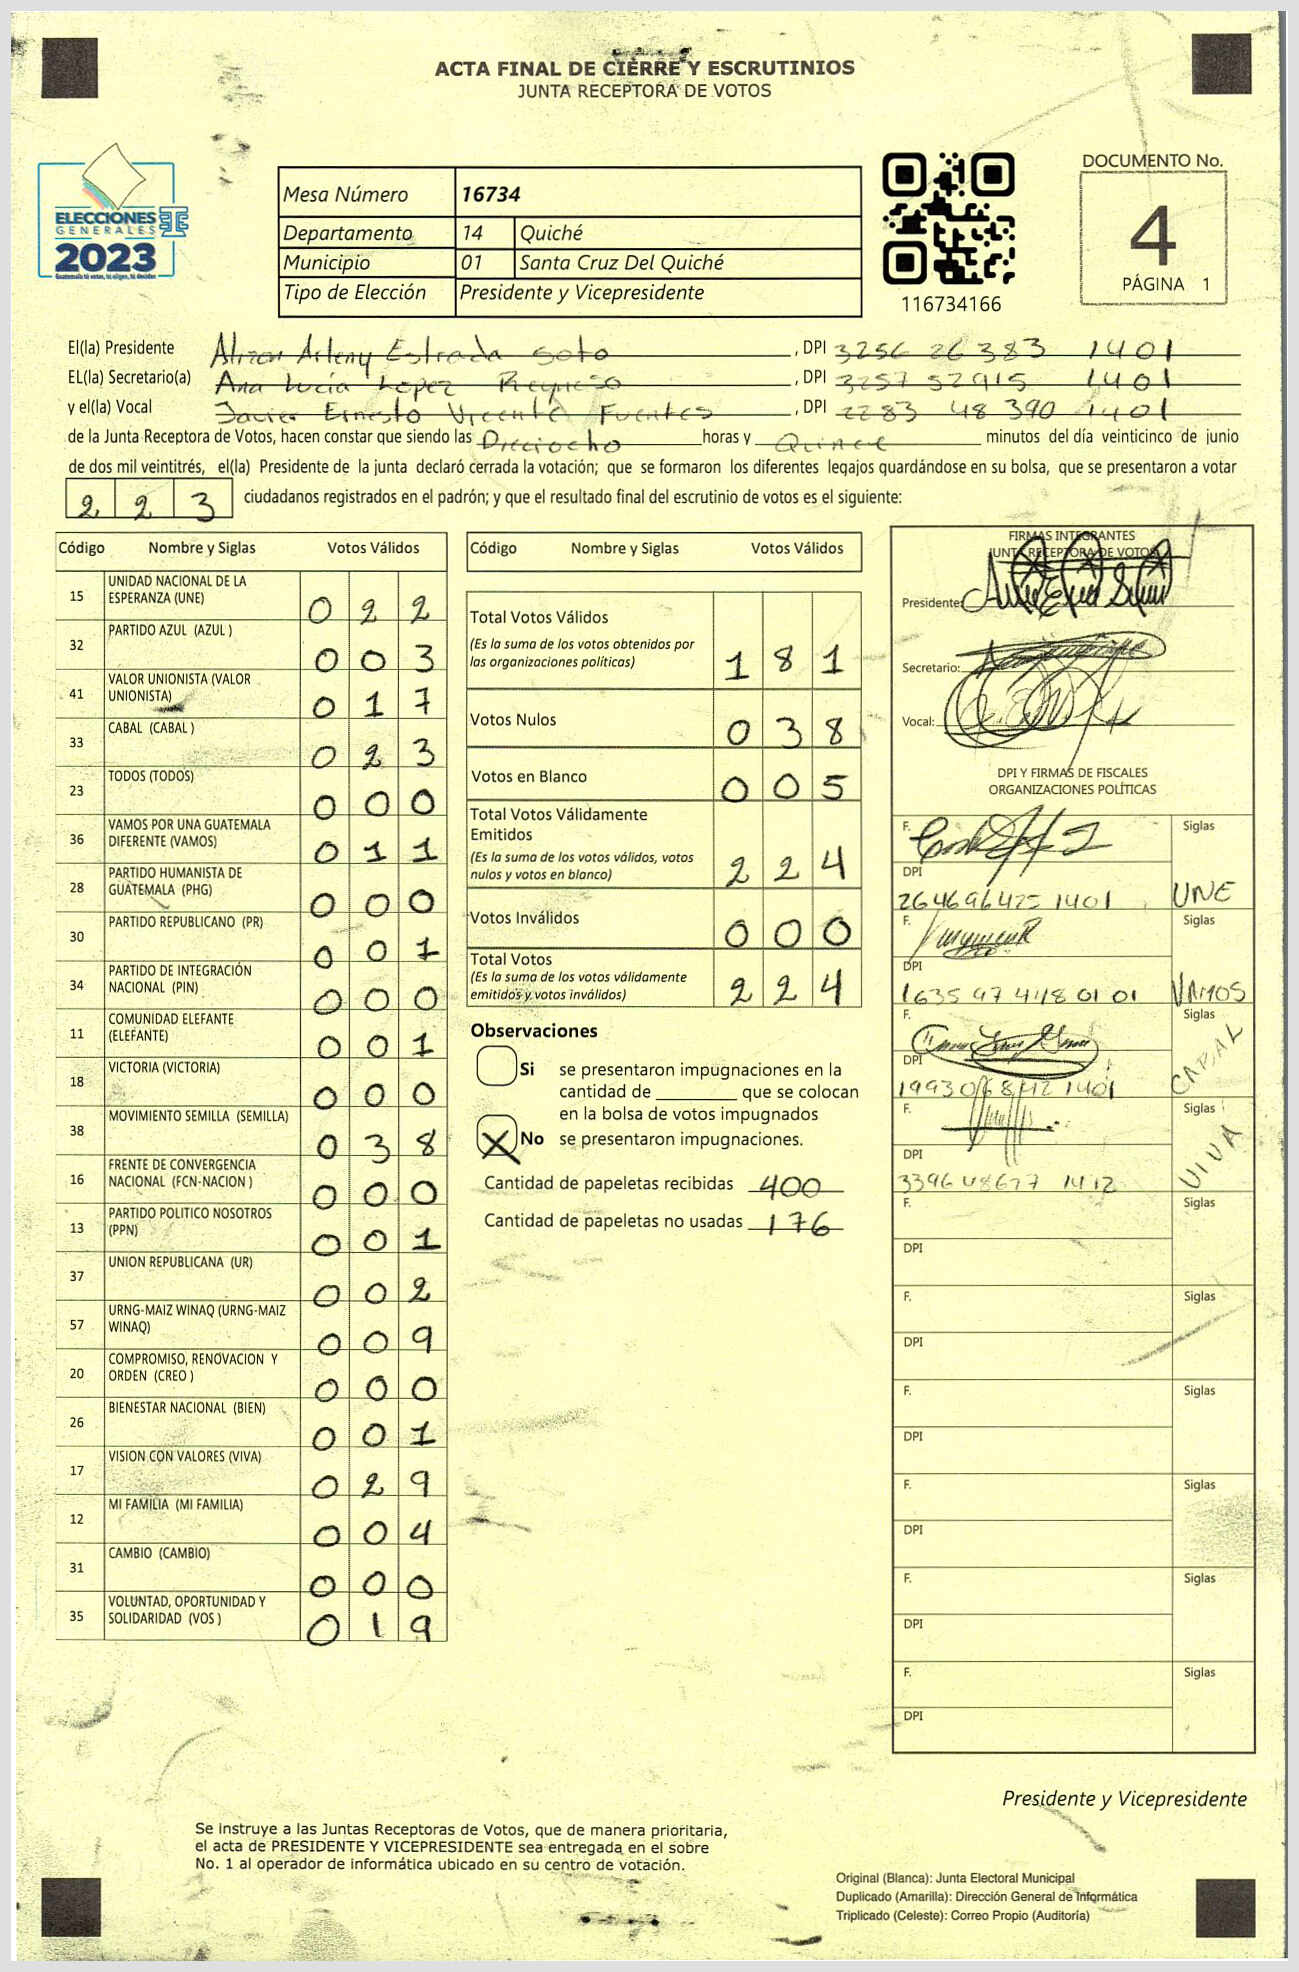 ACTA FINAL DE CIERRE Y ESCRUTINIOS
JUNTA RECEPTORA DE VOTOS
ELECCIONES
GENERALES
2023
Guatemala tú votas, tú eliges, tú decides
Mesa Número 16734
Departamento 14 Quiché
Municipio 01 Santa Cruz Del Quiché
Tipo de Elección Presidente y Vicepresidente
116734166
DOCUMENTO No.
4
PÁGINA 1
El(la) Presidente Alizon Arleny Estrada Soto, DPI 3256 26383 1401
EL(la) Secretario(a) Ana Lucía Lopez Reynoso, DPI 3257 52915 1401
y el(la) Vocal Javier Ernesto Vicente Fuentes, DPI 2283 48390 1401
de la Junta Receptora de Votos, hacen constar que siendo las Dieciocho horas y Quince minutos del día veinticinco de junio
de dos mil veintitrés, el(la) Presidente de la junta declaró cerrada la votación; que se formaron los diferentes legajos quardándose en su bolsa, que se presentaron a votar
223 ciudadanos registrados en el padrón; y que el resultado final del escrutinio de votos es el siguiente:
Código Nombre y Siglas Votos Válidos
15 UNIDAD NACIONAL DE LA ESPERANZA (UNE) 022
32 PARTIDO AZUL (AZUL ) 003
41 VALOR UNIONISTA (VALOR UNIONISTA) 017
33 CABAL (CABAL ) 023
23 TODOS (TODOS) 000
36 VAMOS POR UNA GUATEMALA DIFERENTE (VAMOS) 011
28 PARTIDO HUMANISTA DE GUATEMALA (PHG) 000
30 PARTIDO REPUBLICANO (PR) 001
34 PARTIDO DE INTEGRACIÓN NACIONAL (PIN) 000
11 COMUNIDAD ELEFANTE (ELEFANTE) 001
18 VICTORIA (VICTORIA) 000
38 MOVIMIENTO SEMILLA (SEMILLA) 038
16 FRENTE DE CONVERGENCIA NACIONAL (FCN-NACION ) 000
13 PARTIDO POLITICO NOSOTROS (PPN) 001
37 UNION REPUBLICANA (UR) 002
57 URNG-MAIZ WINAQ (URNG-MAIZ WINAQ) 009
20 COMPROMISO, RENOVACION Y ORDEN (CREO ) 000
26 BIENESTAR NACIONAL (BIEN) 001
17 VISION CON VALORES (VIVA) 029
12 MI FAMILIA (MI FAMILIA) 004
31 CAMBIO (CAMBIO) 000
35 VOLUNTAD, OPORTUNIDAD Y SOLIDARIDAD (VOS ) 019
Código Nombre y Siglas Votos Válidos
Total Votos Válidos
(Es la suma de los votos obtenidos por
las organizaciones políticas) 181
Votos Nulos 038
Votos en Blanco 005
Total Votos Válidamente
Emitidos
(Es la suma de los votos válidos, votos
nulos y votos en blanco) 224
Votos Inválidos 000
Total Votos
(Es la suma de los votos válidamente
emitidos y votos inválidos) 224
Observaciones
Si se presentaron impugnaciones en la
cantidad de ________ que se colocan
en la bolsa de votos impugnados
X No se presentaron impugnaciones.
Cantidad de papeletas recibidas 400
Cantidad de papeletas no usadas 176
FIRMAS INTEGRANTES
JUNTA RECEPTORA DE VOTOS
Presidente:
Secretario:
Vocal:
DPI Y FIRMAS DE FISCALES
ORGANIZACIONES POLÍTICAS
F. Siglas
DPI
264696425 1401 UNE
F. Siglas
DPI
1635 97 4118 01 01 VAMOS
F. Siglas
DPI
1401 CABAL
F. Siglas
DPI
3396 48677 1412 VIVA
F. Siglas
DPI
F. Siglas
DPI
F. Siglas
DPI
F. Siglas
DPI
F. Siglas
DPI
F. Siglas
DPI
Presidente y Vicepresidente
Se instruye a las Juntas Receptoras de Votos, que de manera prioritaria,
el acta de PRESIDENTE Y VICEPRESIDENTE sea entregada en el sobre
No. 1 al operador de informática ubicado en su centro de votación.
Original (Blanca): Junta Electoral Municipal
Duplicado (Amarilla): Dirección General de Informática
Triplicado (Celeste): Correo Propio (Auditoría)